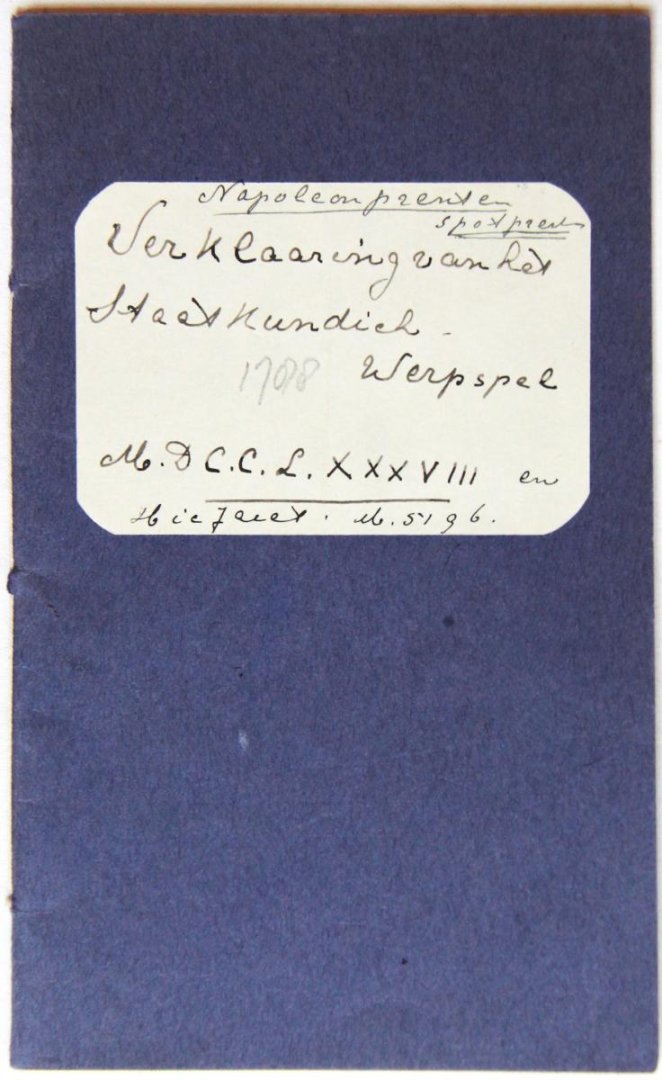 Napoleonprenten
spotprent
Verklaaring van het
Staatkundich
1788 Werpspel
M.D C.C.L.XXXVIII en
M.5196.